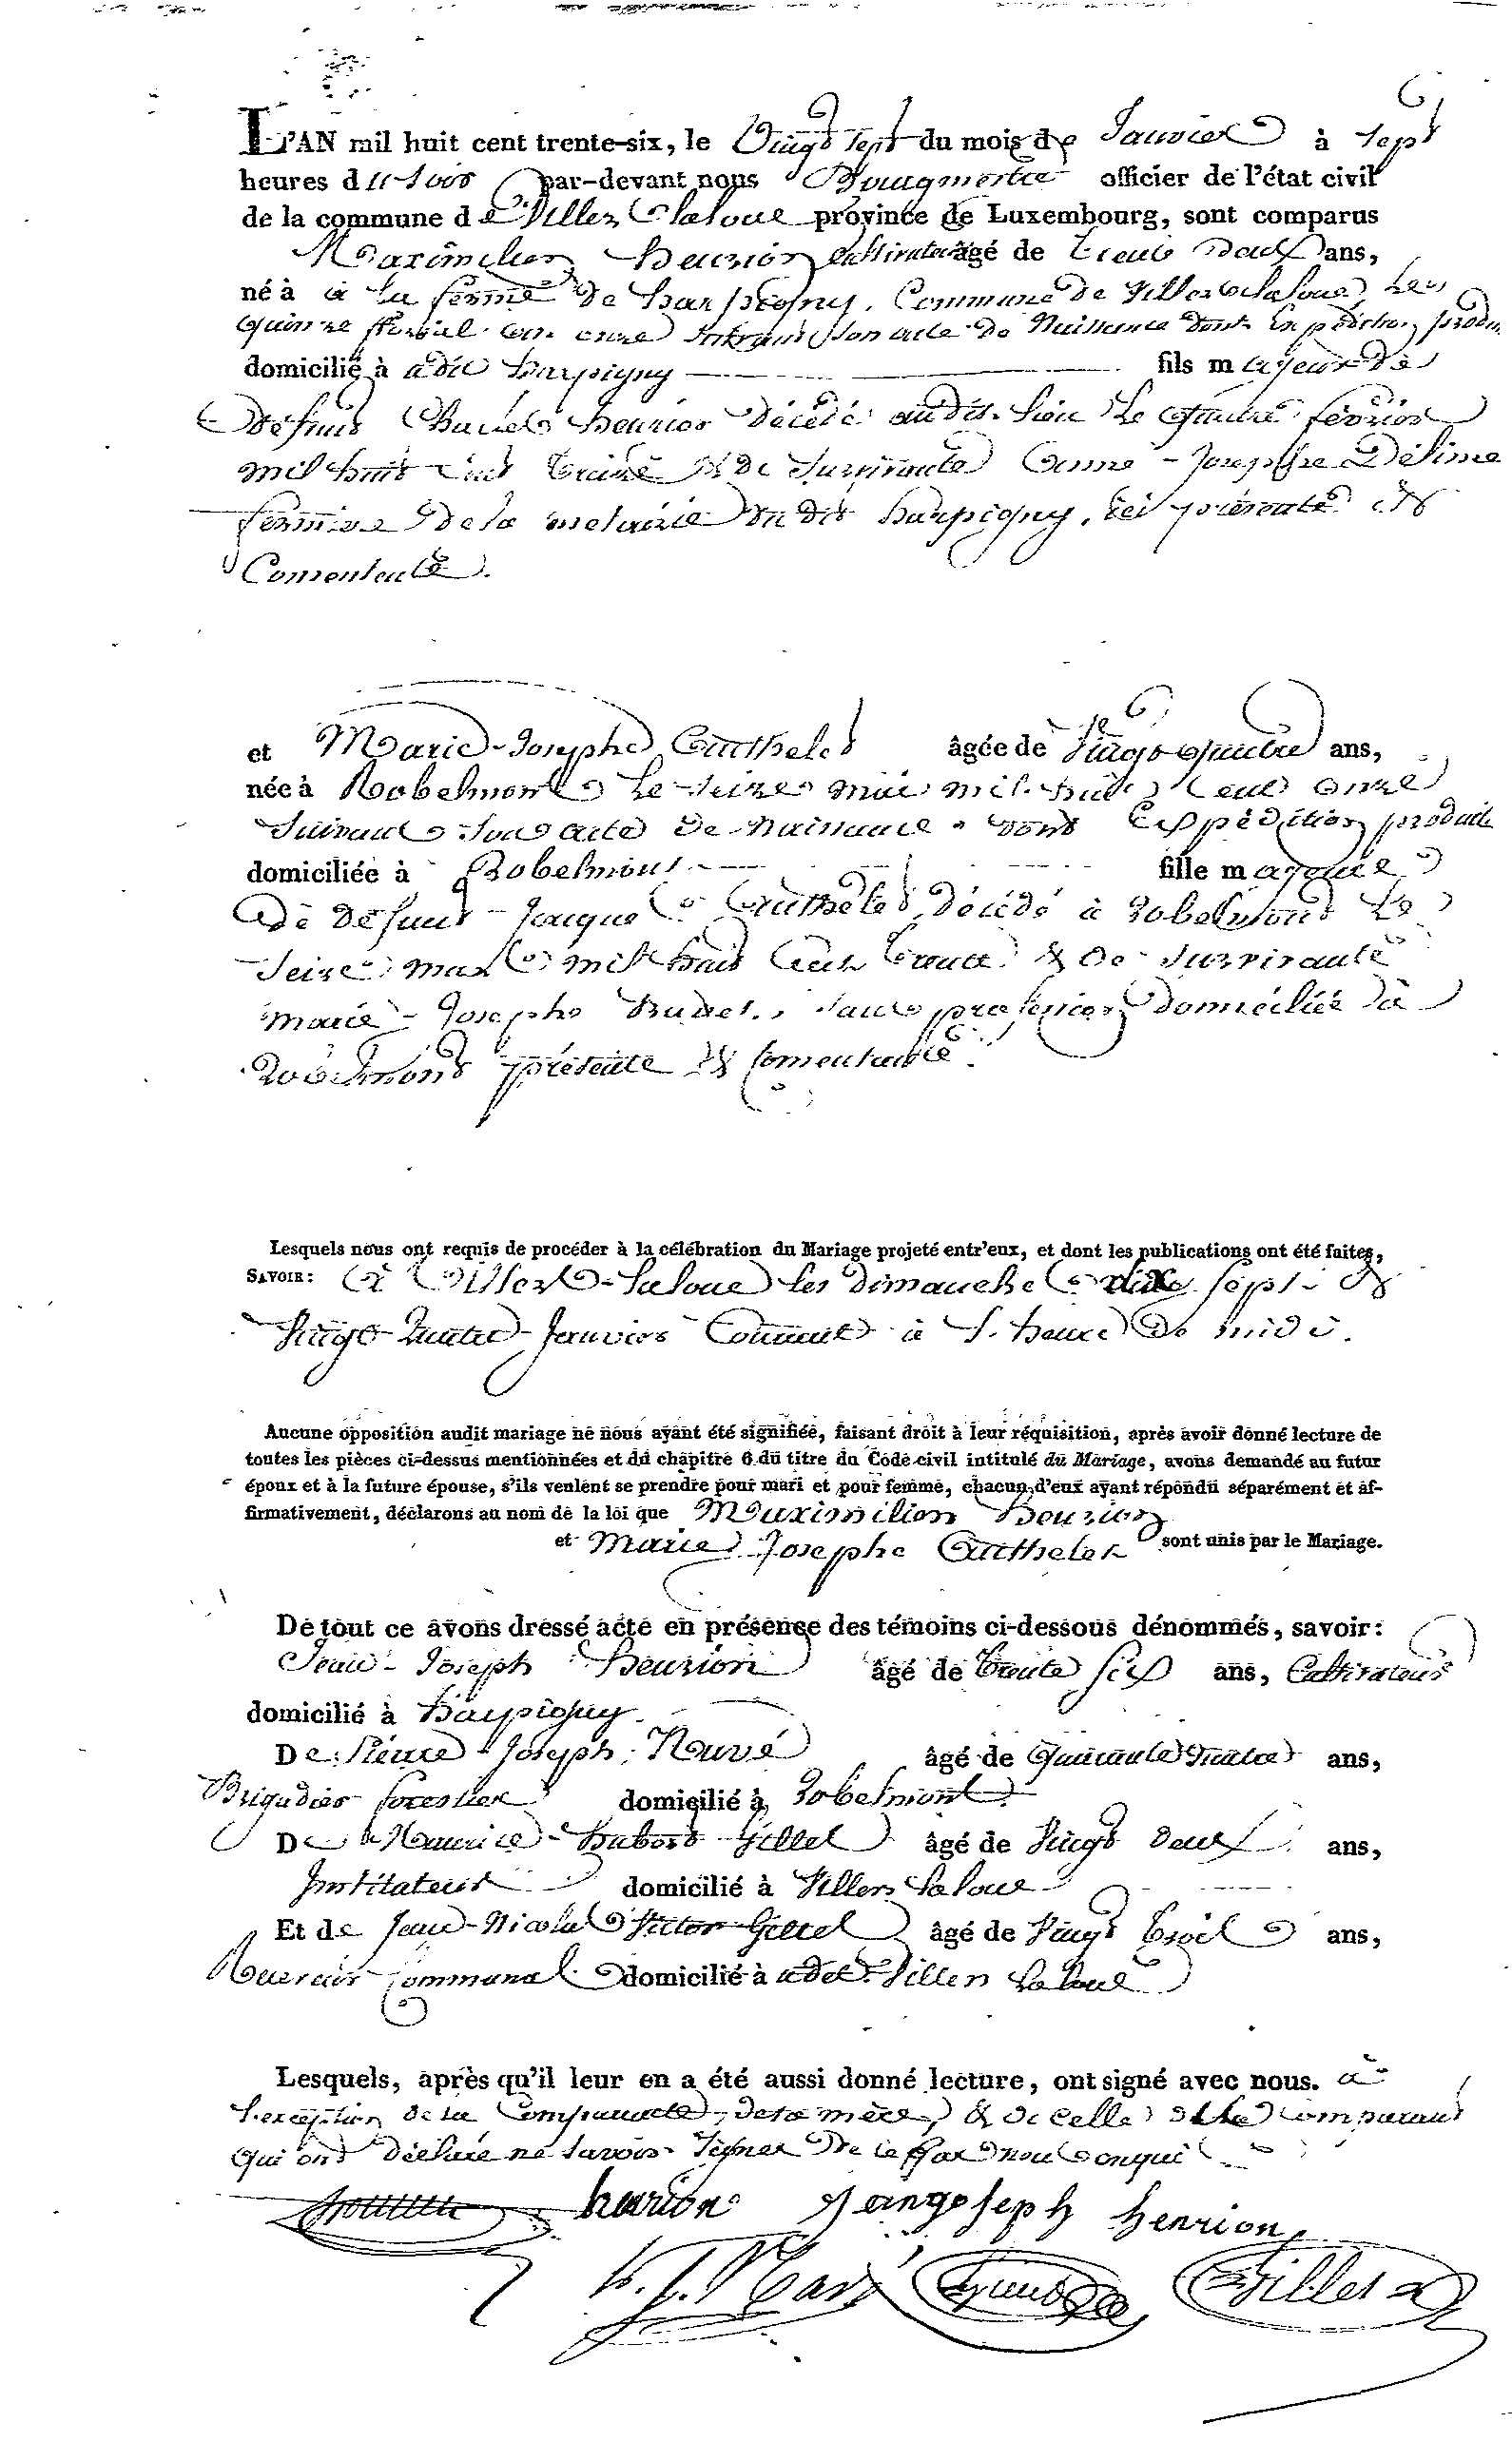 L'AN mil huit cent trente-six, le Vingt sept du mois de Janvier à sept
heures du soir par-devant nous Bourgmestre officier de l'état civil
de la commune de Villers la loue province de Luxembourg, sont comparus
Maximilien henrion cultivateur âgé de trente deux ans,
né à à la ferme de harpigny, Commune de Villers la loue, le
quinze floréal an onze suivant son acte de Naissance dont Expédition produ
domicilié à audit harpigny fils majeur de
Défunt Charles henrion décédé audit lieu le quatre février
mil huit cent treize & de survivante Anne-Josephe Délime
fermière de la métairie du dit harpigny, ici présente et
Consentente.
et Marie-Josephe Authelet âgée de Vingt quatre ans,
née à Robelmont le seize mai mil huit cent onze
suivant son acte de Naissance dont Expédition produite
domiciliée à Robelmont fille majeure
De défunt Jacque Authelet décédé à Robelmont le
seize mars mil huit cent trente & de survivante
marie-Josephe sans profession domiciliée à
Robelmont présente & consentante.
Lesquels nous ont requis de procéder à la célébration du Mariage projeté entr'eux, et dont les publications ont été faites,
SAVOIR: à Villers-la loue les dimanche dix sept &
Vingt quatre Janvier Courant à l'heure de midi.
Aucune opposition audit mariage ne nous ayant été signifiée, faisant droit à leur réquisition, après avoir donné lecture de
toutes les pièces ci-dessus mentionnées et du chapitre 6 du titre du Code civil intitulé du Mariage, avons demandé au futur
époux et à la future épouse, s'ils veulent se prendre pour mari et pour femme, chacun d'eux ayant répondu séparément et af-
firmativement, déclarons au nom de la loi que Maximilien Henrion
et Marie Josephe Authelet sont unis par le Mariage.
De tout ce avons dressé acte en présence des témoins ci-dessous dénommés, savoir:
Jean-Joseph henrion âgé de trente six ans, Cultivateur
domicilié à harpigny.
De Pierre-Joseph Navé âgé de quarante quatre ans,
Brigadier forestier domicilié à Robelmont
De Maurice-hubert Gillet âgé de Vingt deux ans,
Instituteur domicilié à Villers la loue
Et de Jean-Nicolas Victor Gillet âgé de Vingt trois ans,
Communal domicilié à audit Villers la loue
Lesquels, après qu'il leur en a été aussi donné lecture, ont signé avec nous. à
l'exception de la Comparante, de sa mère, & de celle du Comparant
qui ont déclaré ne savoir signer de ce par nous
henrion jangoseph henrion
Gillet